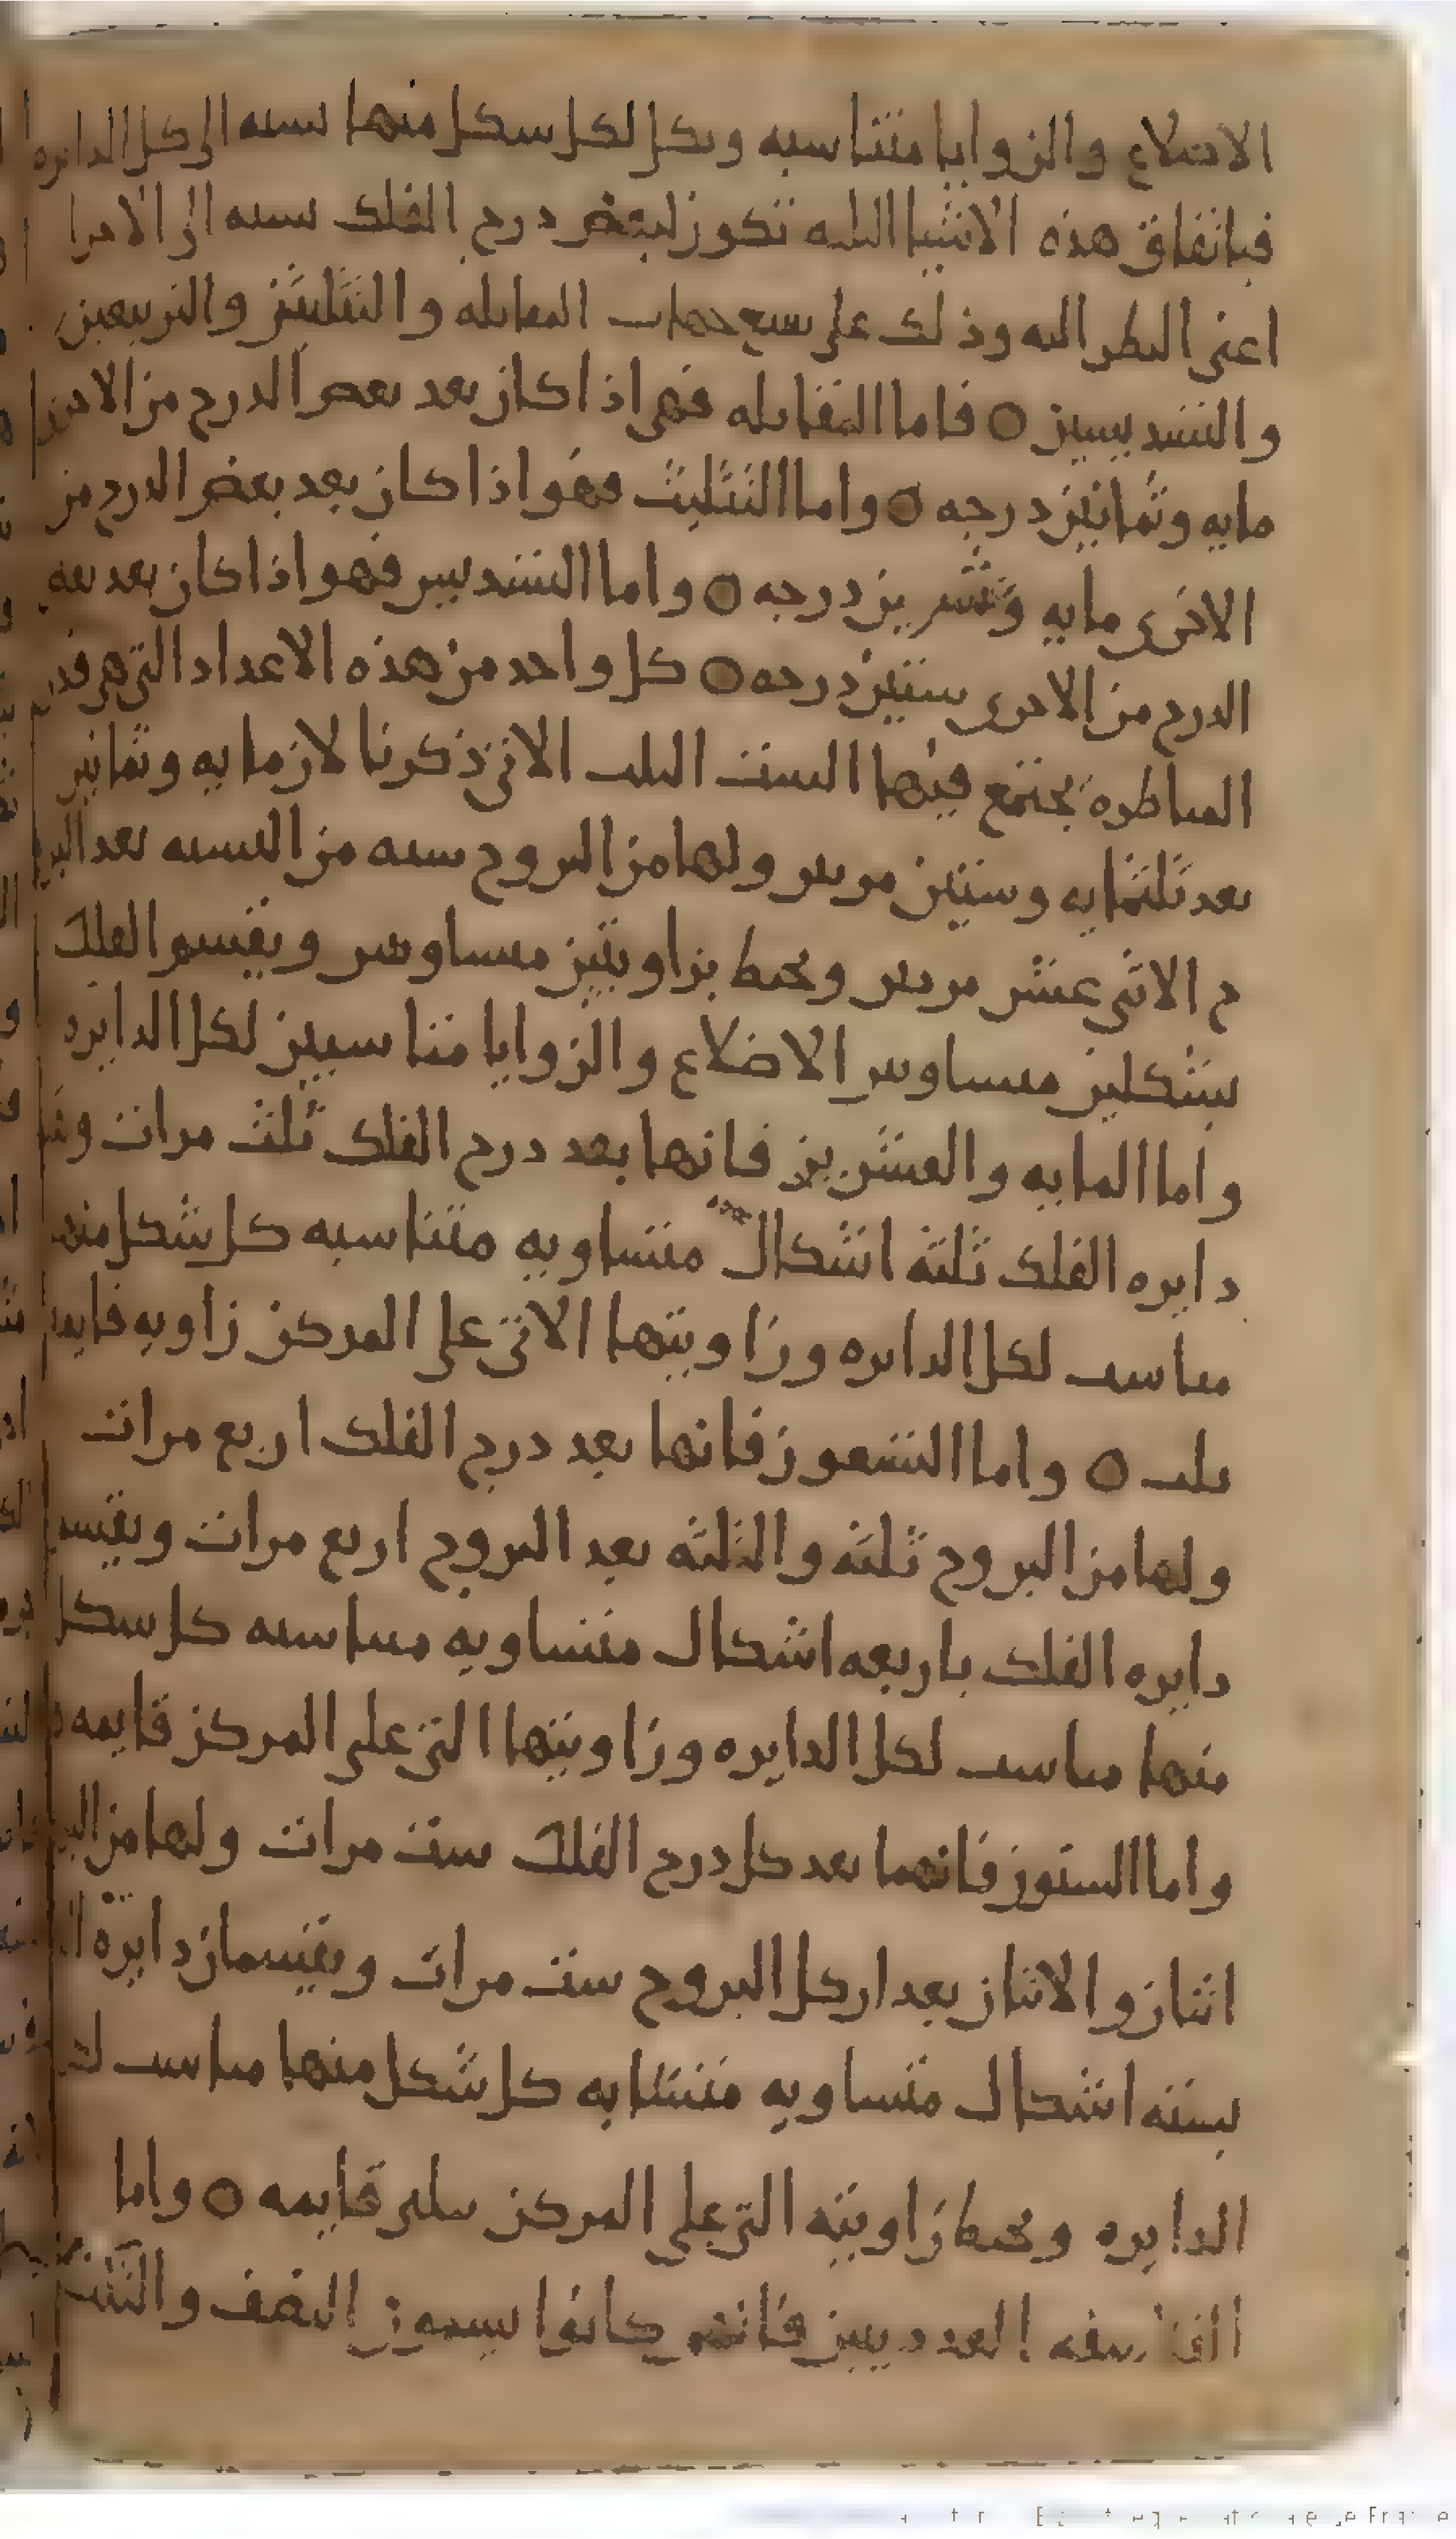 الاضلاع والزوايا متناسبه وىكل لكل سكل منها نسبه الى كل الدايره
فباتفاق هذه الاشيا الثلثه تكون لبعض درج الفلك نسبه الى الاخرا
اعنى النظر اليه وذلك على سبع جهات المقابله والتثليثين والتربيعين
والتسديسين ٥ فاما المقابله فهى اذا كان بعد بعض الدرج من الاخرى
مايه وثمانين درجه ٥ واما التثليث فهو اذا كان بعد بعض الدرج من
الاخرى مايه وعشرين درجه ٥ واما التسديس فهو اذا كان بعد بعض
الدرج من الاخرى ستين درجه ٥ كل واحد من هذه الاعداد التى هى قدر
المناظره يجتمع فيها النسب الثلث الاتى ذكرنا لان مايه وثمانين
تعد ثلثمايه وستين مرتين ولها من البروج سته من النسبه تعد البرو
ج الاثنى عشر مرتين ومحيط بزاويتين متساويتين ويقسم الفلك
بشكلين متساويين الاضلاع والزوايا مناسبين لكل الدايره
واما المايه والعشرين فانها تعد درج الفلك ثلث مرات
دايره الفلك ثلثة اشكال متساويه متناسبه كل شكل منها
مناسب لكل الدايره وزاويتها الاتى على المركز زاويه قايمه
ثلث ٥ واما التسعون فانها تعد درج الفلك اربع مرات
ولها من البروج ثلثة والثلثه تعد البروج اربع مرات وتقسم
دايره الفلك باربعه اشكال متساويه متناسبه كل سكل
منها مناسب لكل الدايره وزاويتها التى على المركز قايمه
واما الستون فانهما تعد كل درج الفلك ست مرات ولها من البر
اثنان والاثنان يعدان كل البروج ست مرات ويقسمان دايرة
بسته اشكال متساويه متشابه كل شكل منها مناسب لكل
الدايره ومحيط زاويته التى على المركز ثلثى قايمه ٥ واما
العدديين فانهم كانوا يسمون النصف والثلث